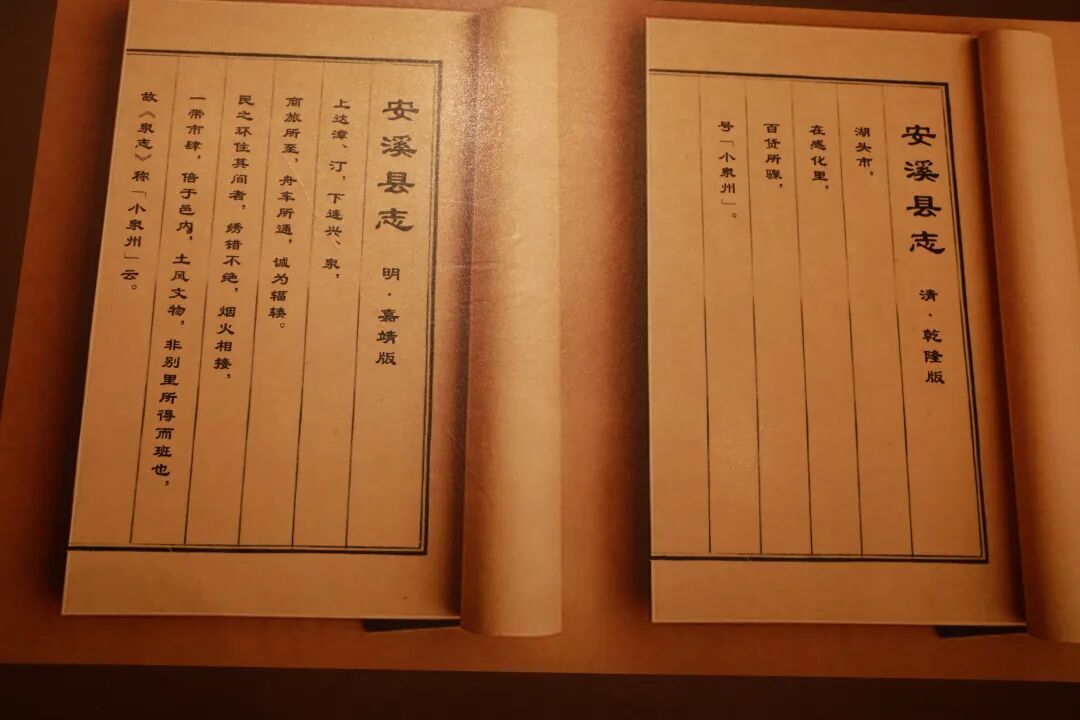 安溪县志 清·乾隆版
湖头市，
在感化里，
百货所骤，
号「小泉州」。
安溪县志 明·嘉靖版
上达漳、汀，下连兴、泉，
商旅所至，舟车所通，诚为辐辏。
民之环住其间者，绣错不绝，烟火相接，
一带市肆，倍于邑内，土风文物，非别里所得而班也，
故《泉志》称「小泉州」云。